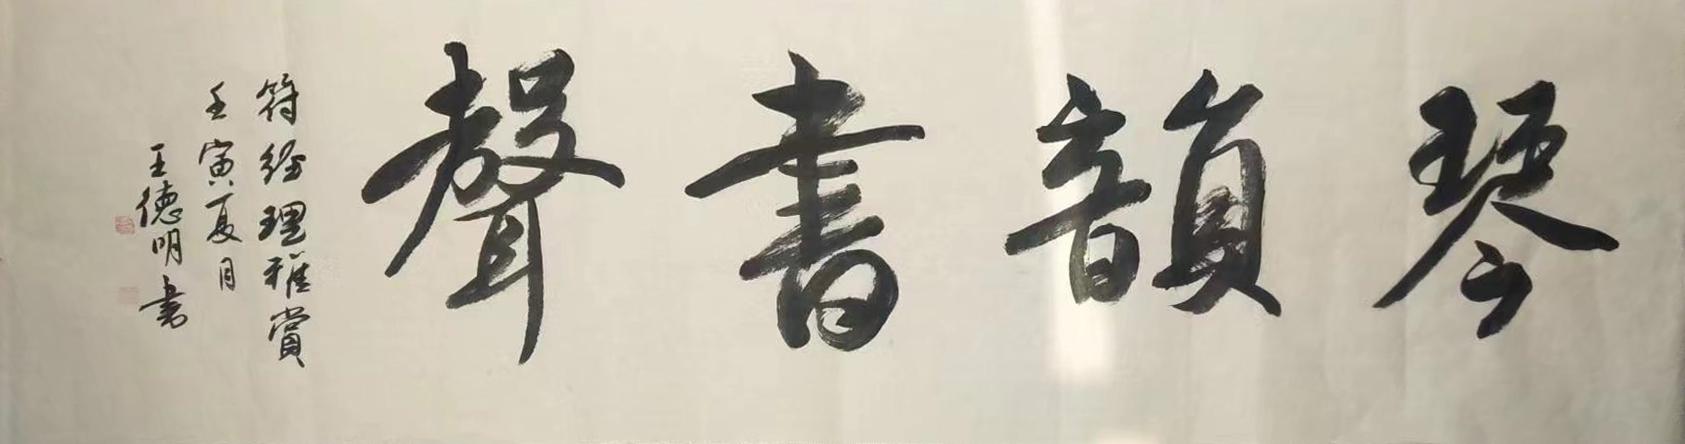 琴韻書聲
符經理雅賞
壬寅夏月
王德明書